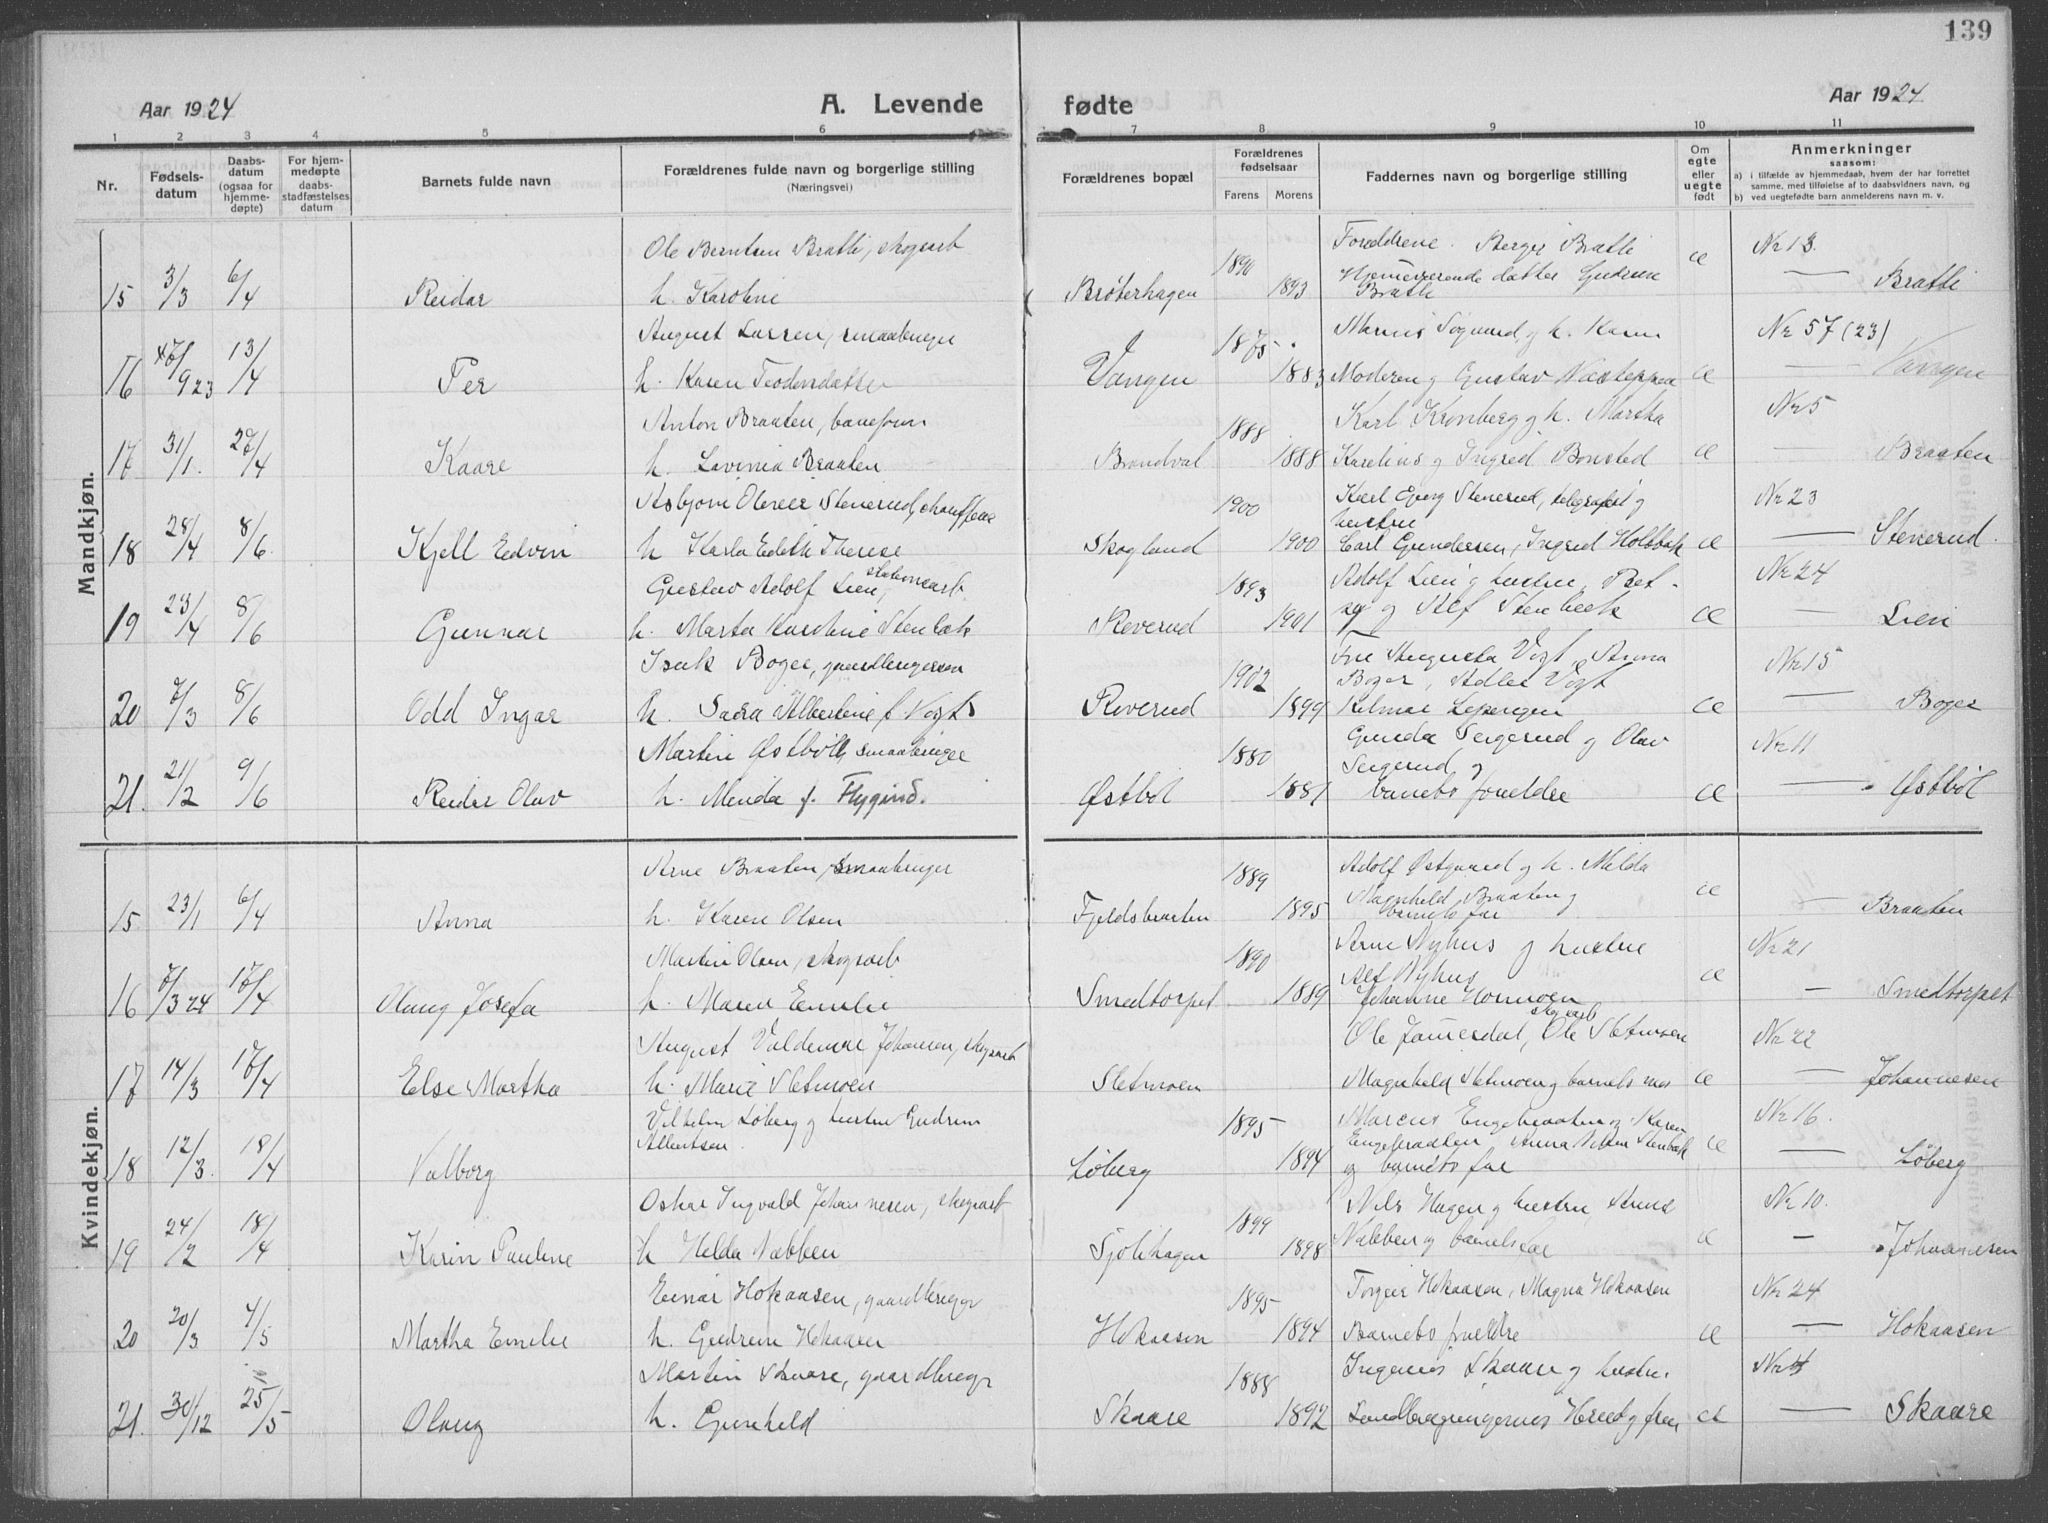 139
Aar 1924
A. Levende fødte
Aar 1924
1 2 3 4 5 6 7 8 9 10 11
Nr.
Fødsels-
datum
Daabs-
datum
(ogsaa for
hjemme-
døpte)
For hjem-
medøpte
daabs-
stadfæstelses
datum
Barnets fulde navn
Forældrenes fulde navn og borgerlige stilling
(Næringsvei)
Forældrenes bopæl
Forældrenes
fødselsaar
Farens Morens
Faddernes navn og borgerlige stilling
Om
egte
eller
uegte
født
Anmerkninger
saasom:
a) i tilfælde av hjemmedaab, hvem der har forrettet
samme, med tilføielse af to daabsvidners navn, og
b) ved uegtefødte barn anmelderens navn m. v.
Mandkjøn.
Ole Berntsen Bratli, skogsarb 1890 Forældrene. Birger Bratli Nr 13
15 3/3 6/4 Reidar h. Karoline Brøterhagen 1893 Hjemmeværende datter Gudrun Bratli æ — Bratli
August Larsen, smaabruger 1875 Marius Sogaard og h. Karen Nr 57 (23)
16 17/9 23 13/4 Per h. Karen Teodorsdatter Vangen 1883 Moderen og Gustav æ — Vangen
Anton Braaten, baneform 1888 Karl Kronberg og h. Martha Nr 5
17 31/1. 27/4 Kaare h. Lovinia Braaten Brandval 1888 Karelius og Ingrid Bonsted æ — Braaten
Asbjørn Oliver Stenerud, chauffeur 1900 Karl Georg Stenerud, telegrafist og
hustru Nr 23
18 28/4 8/6 Kjell Edvin h Karla Edith Therese Skogland 1900 Carl Gundersen, Ingrid Holsbak æ — Stenerud.
Gustav Adolf Lien, stationsarb. 1893 Adolf Lien og hustru, Bet- Nr 24
19 23/4 8/6 Gunnar h. Marta Karoline Stenbæk Reverud 1901 sy og Alf Stenbæk æ — Lien
Isak Boger, gaardbrugersøn 1902 Fru Augusta Vogt, Anna Nr 15
Boger, Adler Vogt
20 7/3 8/6 Odd Ingar h. Sara Albertine f Vogt Reverud 1899 Hilmar æ — Boger
Martin Østbøl, smaabruger 1880 Gunda Seigerud og Olav Nr 11
Seigerud og
21. 21/2 9/6 Reidar Olav h. Minda f. Flygind. Østbøl 1881 barnets foreldre æ — Østbøl
Kvindekjøn.
Arne Braaten, smaabruger 1889 Adolf Østgaard og h. Milda
15. 23/1 6/4 Anna h. Karen Olsen Fjeldsbraaten 1895 Magnhild Braaten og
barnets far æ — Braaten
Martin Olsen, skogsarb 1890 Arne Nyhus og hustru Nr 21
Alf Nyhus
16 7/3 24 17/4 Olaug Josefa h. Maren Emilie Smedtorpet 1889 Johanne Hommoen æ — Smedtorpet
August Valdemar Johansen, skogsarb Ole Jamesdal, Ole Sletmoen skogsarb Nr 22
17 14/3 17/4 Else Martha h. Marie Sletmoen Sletmoen Magnhild Sletmoen og barnets mor æ — Johannesen
Vilhelm Løberg og hustru Gudrun
Albertsen. 1895 Marcus Engebraaten og Karen Nr 16.
18 12/3. 18/4 Valborg Løberg 1894 Engebraaten, Anna Stenbæk
og barnets far æ — Løberg
Oskar Ingvald Johannesen, skogsarb 1899 Nils Hagen og hustru, Nr 10.
19 24/2 18/4 Karin Pauline h Hilda Nabben Sjølihagen 1898 Nabben og barnets far æ — Johannesen
Einar Hokaasen, gaardbruger 1895 Torgeir Hokaasen, Magna Hokaasen Nr 24
20 20/3 4/5 Martha Emilie h. Gudrun Hokaasen Hokaasen 1894 Barnets foreldre æ — Hokaasen
Martin Skaare, gaardbruger 1888 Skaare og hustru. Nr 4
21. 30/12 25/5 Olaug h. Gunhild Skaare 1892 æ — Skaare